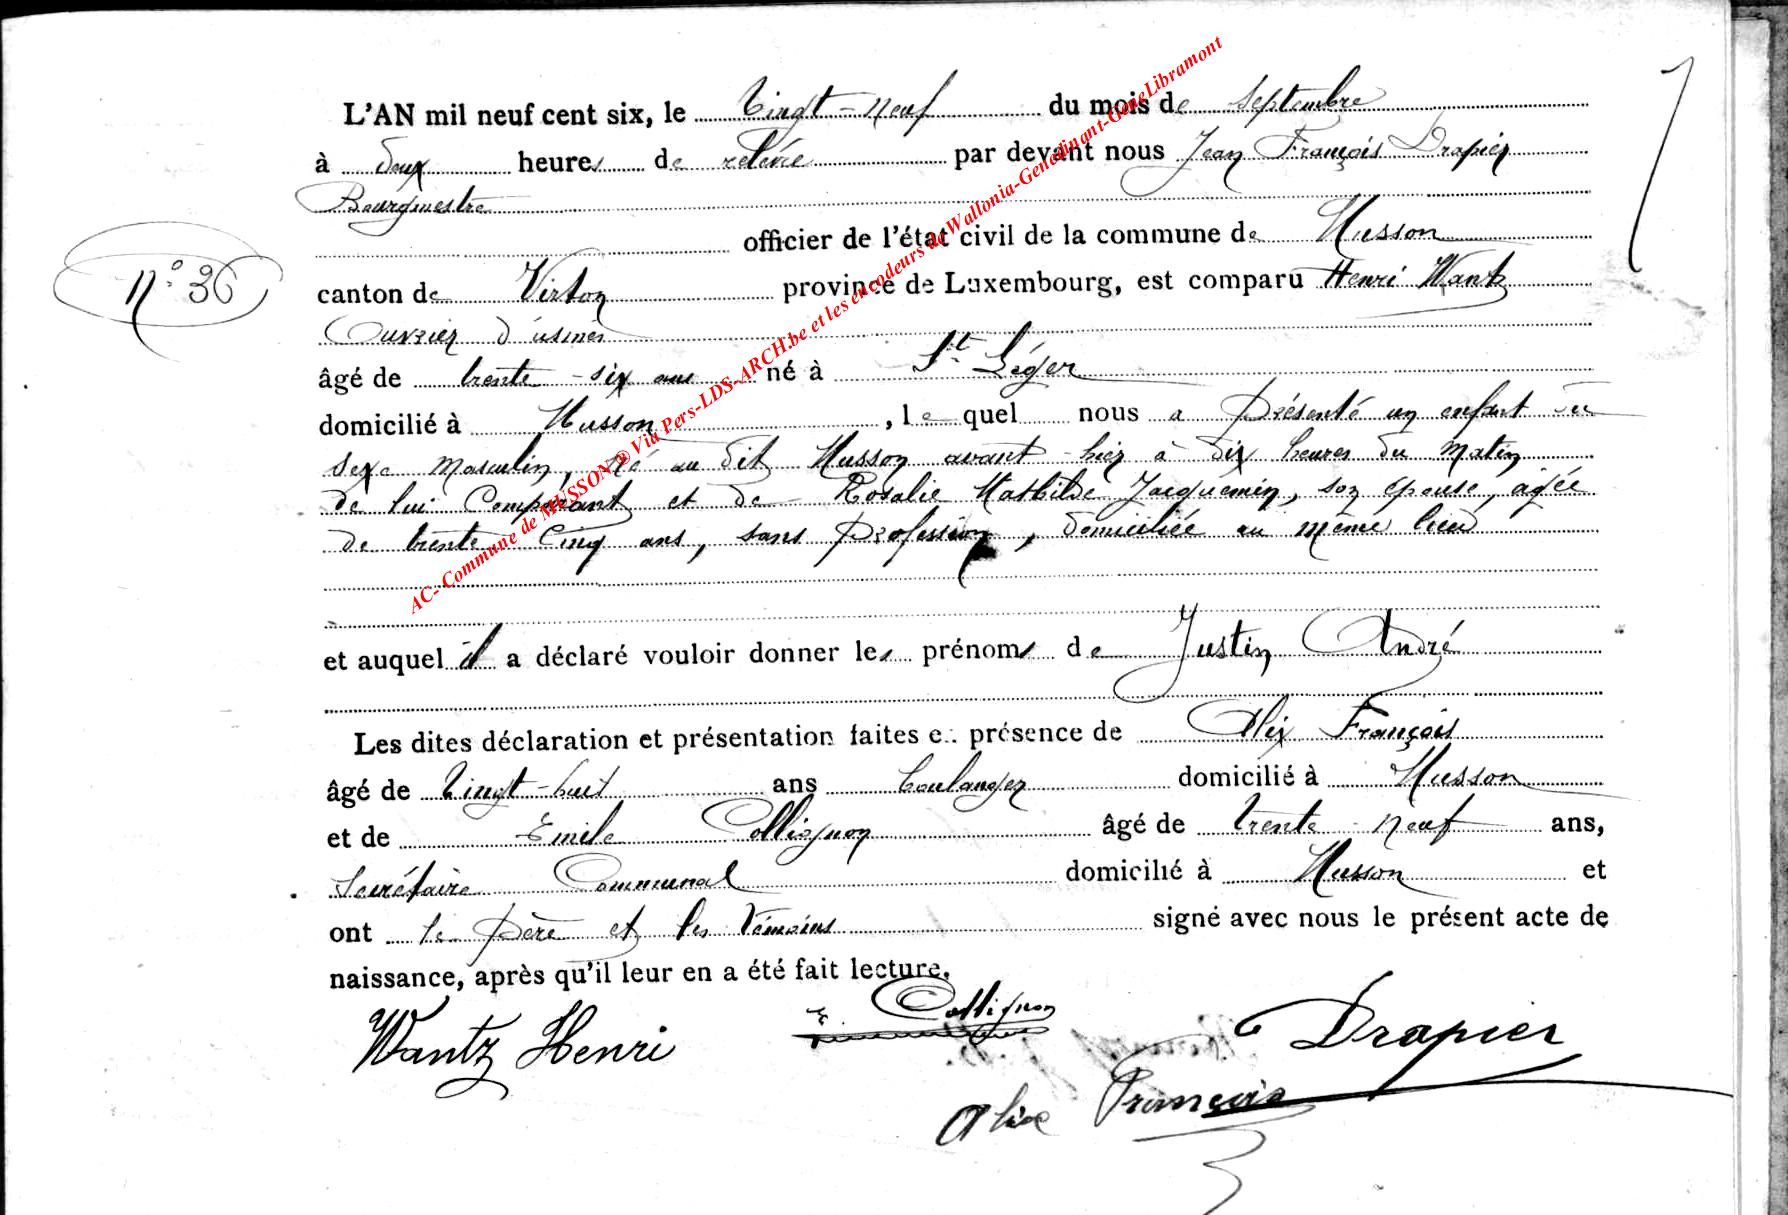 L'AN mil neuf cent six, le Vingt-neuf du mois de Septembre
à deux heures de relevée par devant nous Jean François Drapier
Bourgmestre
officier de l'état civil de la commune de Musson
n° 36
canton de Virton province de Luxembourg, est comparu Henri Wantz
Ouvrier d'usines
âgé de trente-six ans né à St Léger
domicilié à Musson, le quel nous a présenté un enfant du
sexe masculin, né au dit Musson avant-hier à dix heures du matin
de lui Comparant et de Rosalie Mathilde Jacquemin, son épouse, âgée
de trente Cinq ans, sans profession, domiciliée au même lieu
et auquel il a déclaré vouloir donner les prénoms de Justin André
Les dites déclaration et présentation faites en présence de Alix François
âgé de Vingt-huit ans boulanger domicilié à Musson
et de Emile Collignon âgé de trente-neuf ans,
Secrétaire Communal domicilié à Musson et
ont le père et les témoins signé avec nous le présent acte de
naissance, après qu'il leur en a été fait lecture.
Wantz Henri E. Collignon Drapier
Alix François
AC- Commune de MUSSON ® Via Pers-LDS-ARCH.be et les encodeurs de Wallonia-Genedinant-GeneLibramont